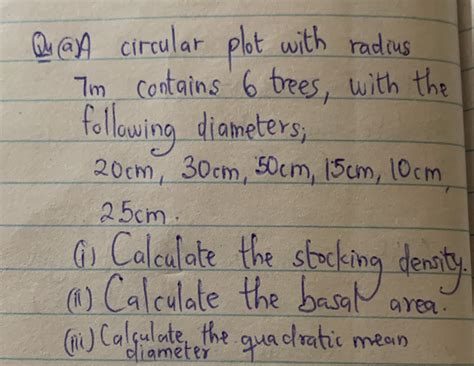 Qu (a) A circular plot with radius
7m contains 6 trees, with the
following diameters;
20cm, 30cm, 50cm, 15cm, 10cm,
25cm.
(i) Calculate the stocking density.
(ii) Calculate the basal area.
(iii) Calculate the quadratic mean
diameter